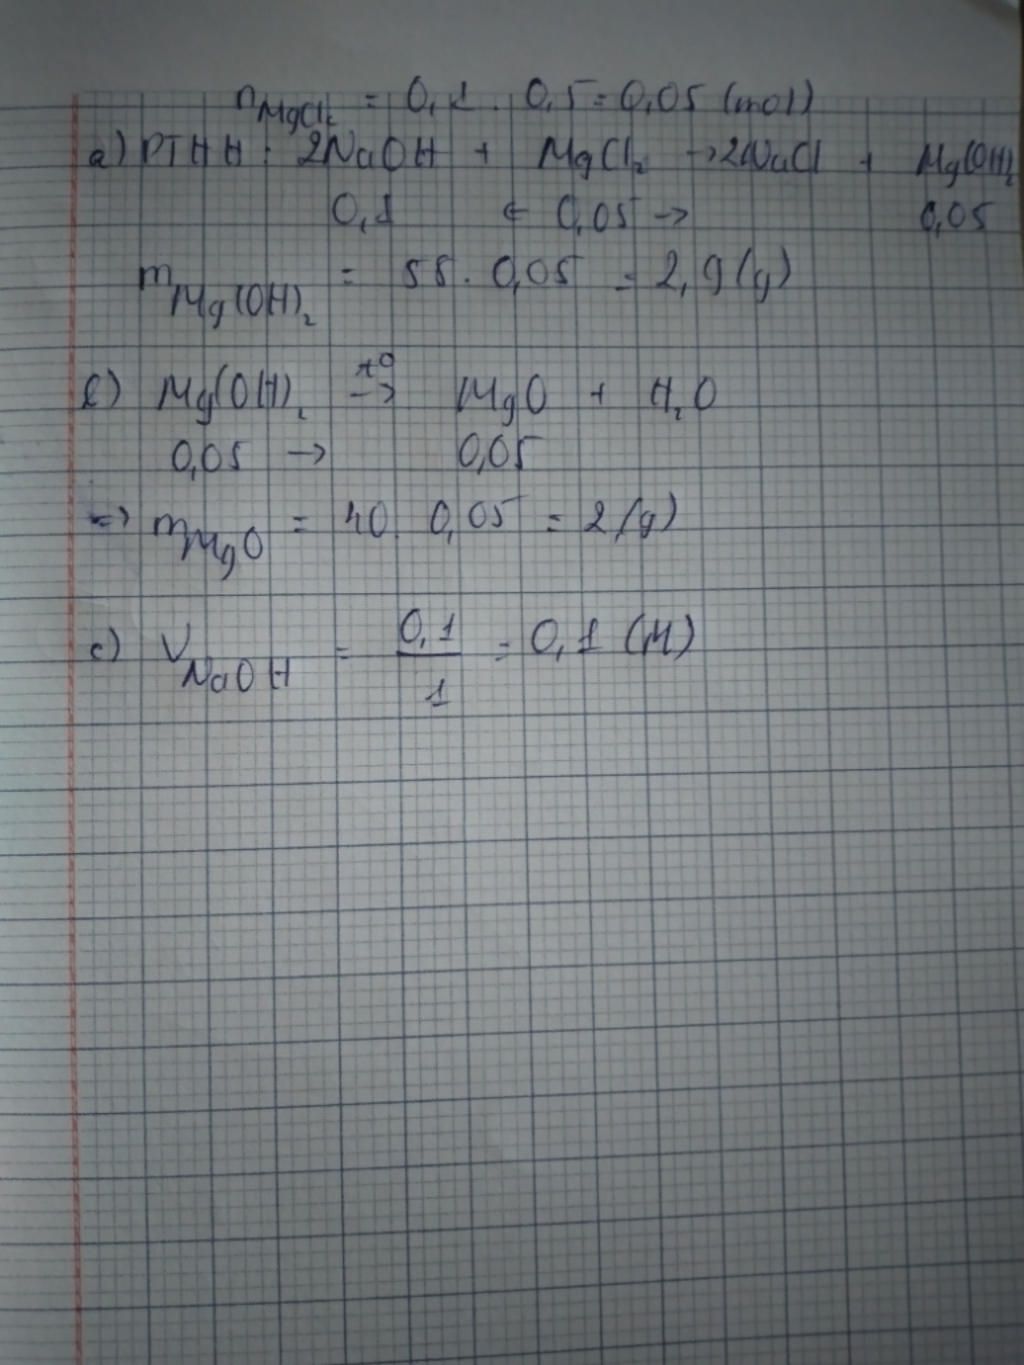 nMgCl₂ = 0,1 . 0,5 = 0,05 (mol)
a) PTHH : 2NaOH + MgCl₂ → 2NaCl + Mg(OH)₂
0,1 ← 0,05 → 0,05
mMg(OH)₂ = 58 . 0,05 = 2,9 (g)
b) Mg(OH)₂ →t⁰ MgO + H₂O
0,05 → 0,05
=> mMgO = 40 . 0,05 = 2 (g)
c) VNaOH = 0,1/1 = 0,1 (M)